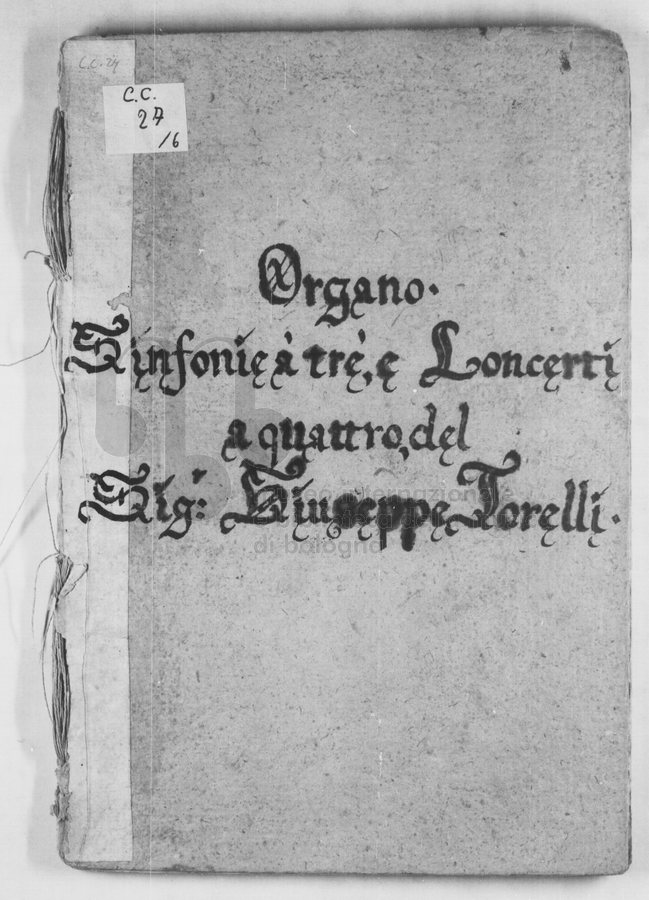 C.C. 27
C.C.
27
/6
Organo.
Sinfonie à trè, e Concerti
a quattro, del
Sig.r Giuseppe Torelli.
di bologna